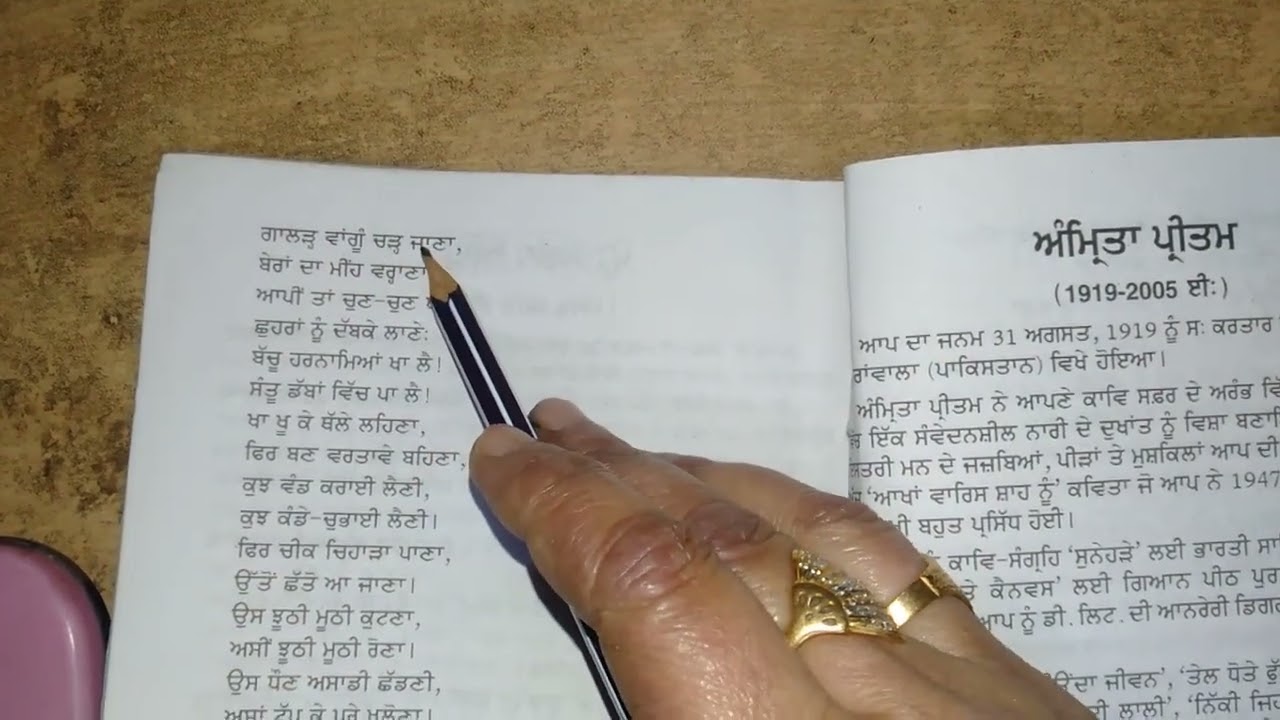 ਗਾਲੜ੍ਹ ਵਾਂਗੂੰ ਚੜ੍ਹ ਜਾਣਾ,
ਬੇਰਾਂ ਦਾ ਮੀਂਹ ਵਰ੍ਹਾਣਾ
ਆਪੀਂ ਤਾਂ ਚੁਣ-ਚੁਣ
ਛੁਹਰਾਂ ਨੂੰ ਦੱਬਕੇ ਲਾਣੇ:
ਬੱਚੂ ਹਰਨਾਮਿਆਂ ਖਾ ਲੈ!
ਸੰਤੂ ਡੱਬਾਂ ਵਿੱਚ ਪਾ ਲੈ!
ਖਾ ਖੂ ਕੇ ਥੱਲੇ ਲਹਿਣਾ,
ਫਿਰ ਬਣ ਵਰਤਾਵੇ ਬਹਿਣਾ,
ਕੁਝ ਵੰਡ ਕਰਾਈ ਲੈਣੀ,
ਕੁਝ ਕੰਡੇ-ਚੁਭਾਈ ਲੈਣੀ।
ਫਿਰ ਚੀਕ ਚਿਹਾੜਾ ਪਾਣਾ,
ਉੱਤੋਂ ਛੱਤੋ ਆ ਜਾਣਾ।
ਉਸ ਝੂਠੀ ਮੂਠੀ ਕੁਟਣਾ,
ਅਸੀਂ ਝੂਠੀ ਮੂਠੀ ਰੋਣਾ।
ਉਸ ਧੌਣ ਅਸਾਡੀ ਛੱਡਣੀ,
ਅਸਾਂ ਟੱਪ ਕੇ ਪਰੇ ਖਲੋਣਾ।
ਅੰਮ੍ਰਿਤਾ ਪ੍ਰੀਤਮ
(1919-2005 ਈ:)
ਆਪ ਦਾ ਜਨਮ 31 ਅਗਸਤ, 1919 ਨੂੰ ਸ: ਕਰਤਾਰ
(ਪਾਕਿਸਤਾਨ) ਵਿਖੇ ਹੋਇਆ।
ਅੰਮ੍ਰਿਤਾ ਪ੍ਰੀਤਮ ਨੇ ਆਪਣੇ ਕਾਵਿ ਸਫ਼ਰ ਦੇ ਅਰੰਭ
ਇੱਕ ਸੰਵੇਦਨਸ਼ੀਲ ਨਾਰੀ ਦੇ ਦੁਖਾਂਤ ਨੂੰ ਵਿਸ਼ਾ
ਮਨ ਦੇ ਜਜ਼ਬਿਆਂ, ਪੀੜਾਂ ਤੇ ਮੁਸ਼ਕਿਲਾਂ ਆਪ ਦੀ
'ਆਖਾਂ ਵਾਰਿਸ ਸ਼ਾਹ ਨੂੰ' ਕਵਿਤਾ ਜੋ ਆਪ ਨੇ 1947
ਬਹੁਤ ਪ੍ਰਸਿੱਧ ਹੋਈ।
ਕਾਵਿ-ਸੰਗ੍ਰਹਿ 'ਸੁਨੇਹੜੇ' ਲਈ ਭਾਰਤੀ
ਕੈਨਵਸ' ਲਈ ਗਿਆਨ ਪੀਠ
ਆਪ ਨੂੰ ਡੀ. ਲਿਟ. ਦੀ ਆਨਰੇਰੀ
ਜੀਵਨ', 'ਤੇਲ ਧੋਤੇ
ਲਾਲੀ', 'ਨਿੱਕੀ